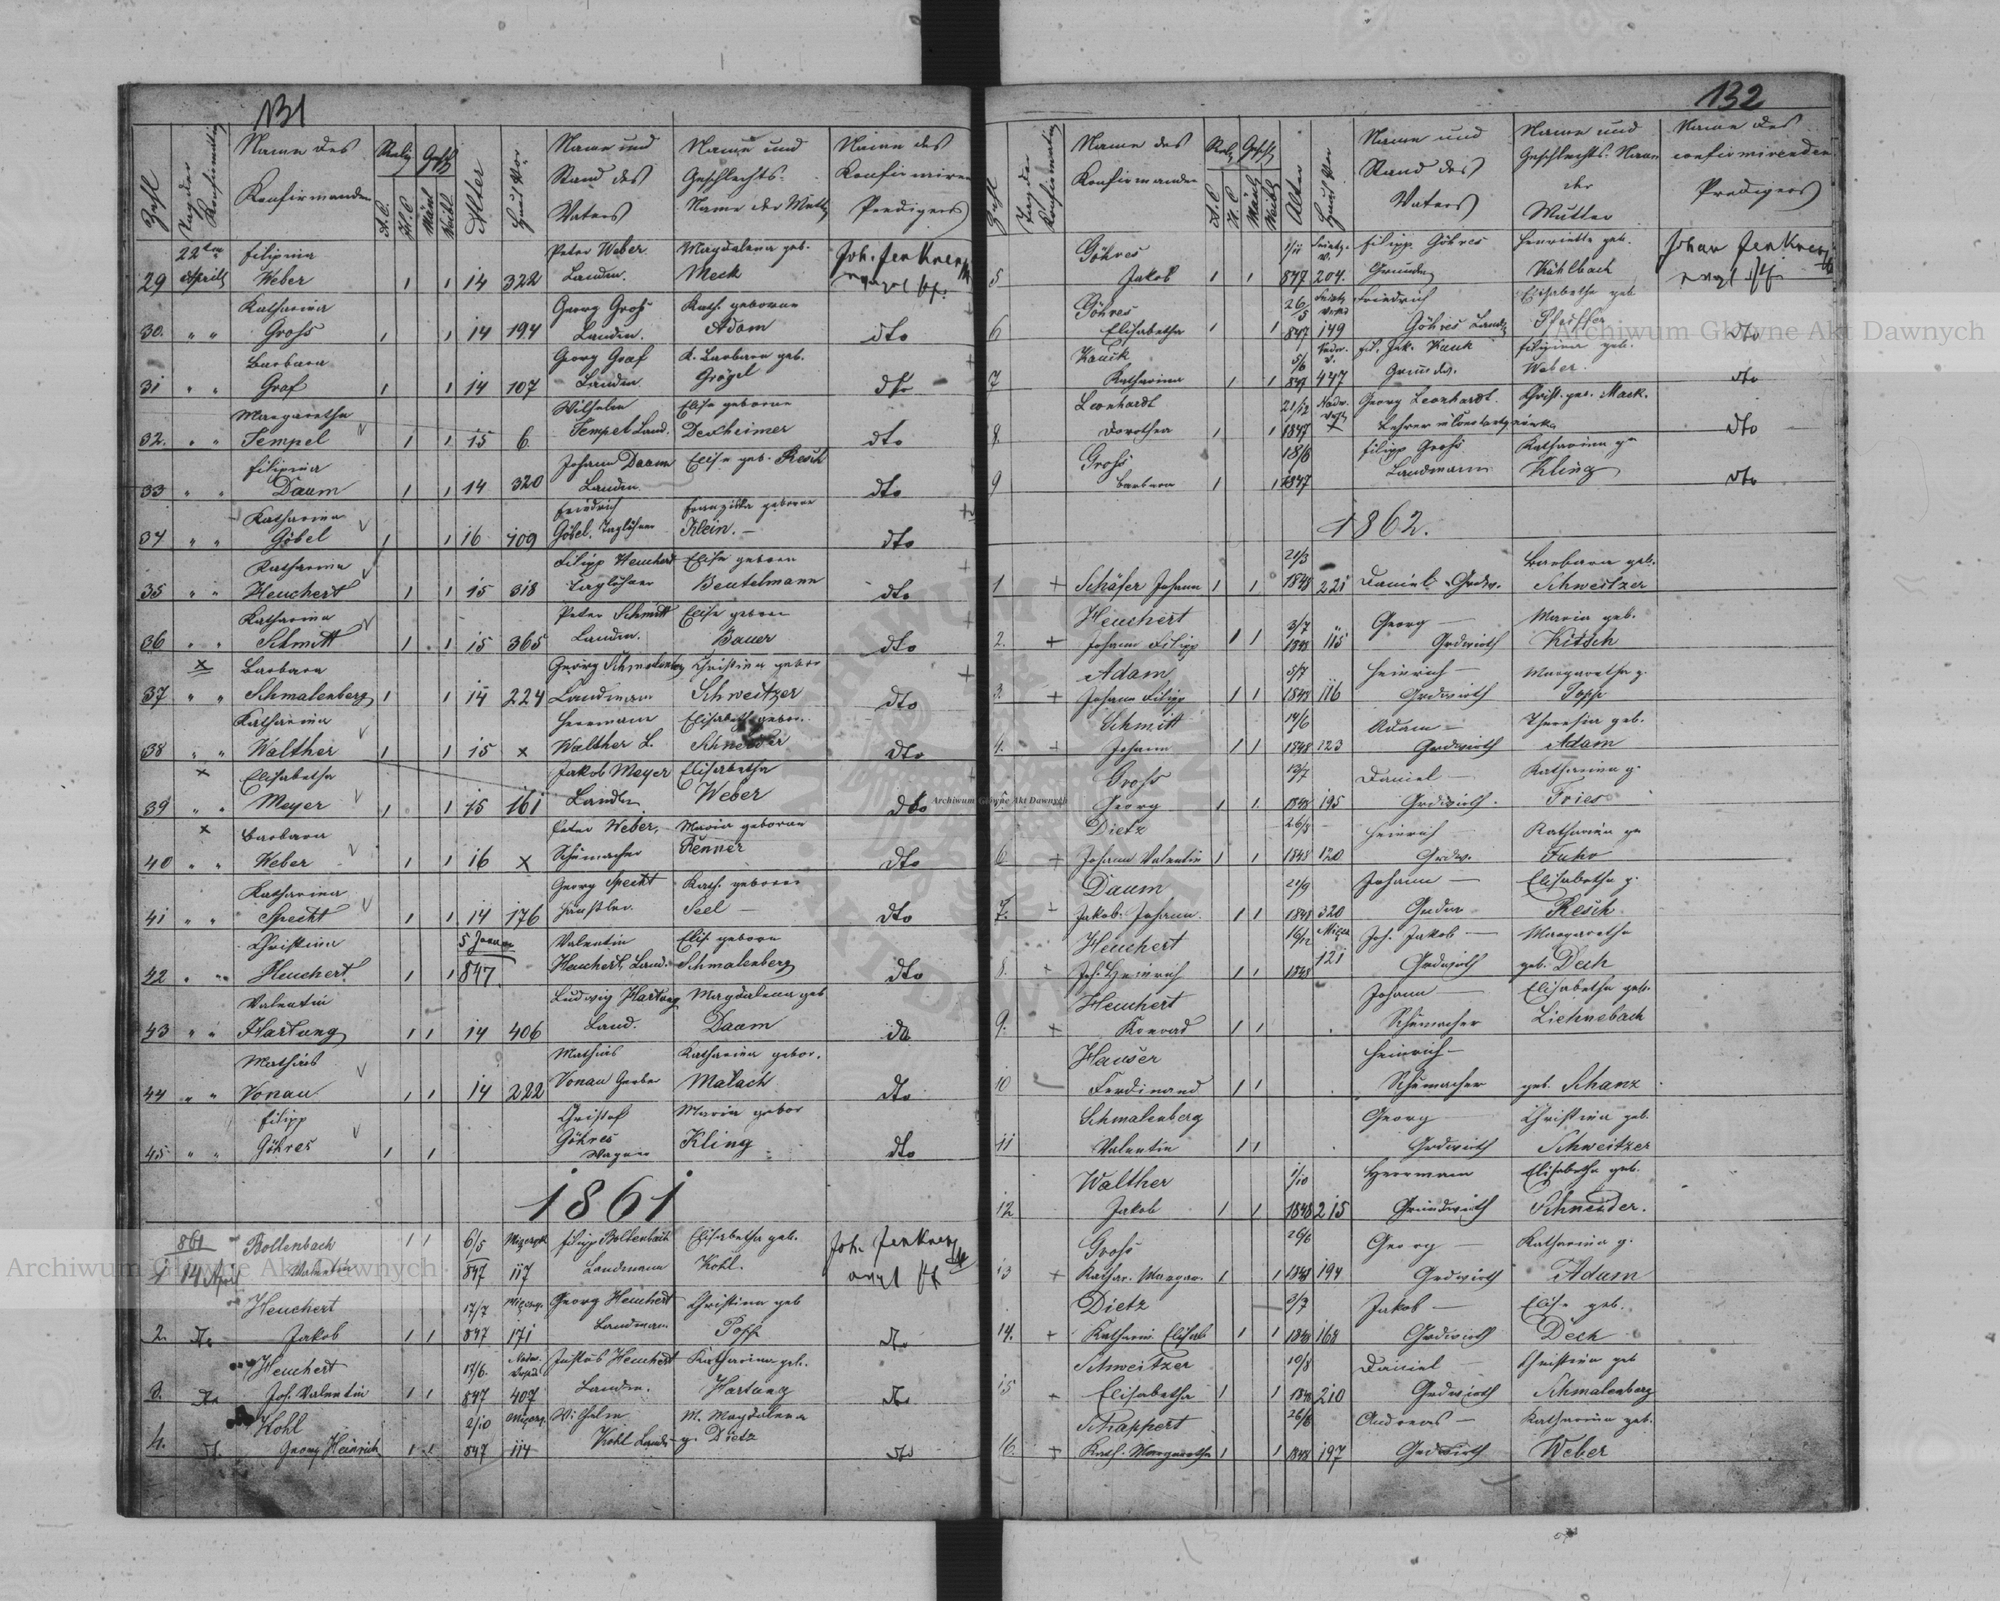 131
Zahl
Tag der Konfirmation
Name des Konfirmanden
Relig.
Geschl.
A.C.
H.C.
Mänl
Weibl.
Alter
Haus Nro
Name und Stand des Vaters
Name und Geschlechts-Name der Mutter
Name des Konfirmiren Predigers
22ten Filipina Peter Weber Magdalena geb. Joh.
29 Aprill Weber 1 1 14 322 Landm. Meck
Katharina Georg Groß Kath. geborne
30. " " Grohs 1 1 14 194 Landm. Adam dto
Barbara Georg Graf K. Barbara geb.
31 " " Graf 1 1 14 107 Landm. dto
Margaretha Wilhelm Elise geborne
32. " " Tempel 1 1 15 6 Tempel Land. Dexheimer dto
Filipina Johann Daam Elise geb. Resch
33 " " Daum 1 1 14 320 Landm. dto
Katharina Friedrich Franziska geborne
34 " " Göbel 1 1 16 109 Göbel, Taglöhner Klein. dto
Katharina Filipp Heuchert Elise geborn
35 " " Heuchert 1 1 15 318 Taglöhner Beutelmann dto
Katharina Peter Schmitt Elise geborn
36 " " Schmitt 1 1 15 365 Landm. Bauer dto
x Barbara Georg Schmalenberg Christina gebor
37 " " Schmalenberg 1 1 14 224 Landmann Schweitzer dto
Katharina Herrmann Elisabetha gebor.
38 " " Walther 1 1 15 x Walther L. Schneider dto
x Elisabetha Jakob Meyer Elisabetha
39 " " Meyer 1 1 15 161 Landm Weber dto
x Barbara Peter Weber, Maria geborne
40 " " Weber 1 1 16 x Schumacher Renner dto
Katharina Georg Specht Kath. geborne
41 " " Specht 1 1 14 176 Häusler. Seel dto
Christina 5 Januar Valentin Elis. geborn
42 " " Heuchert 1 1 847. Heuchert, Land. Schmalenberg dto
Valentin Ludwig Hartung Magdalena geb
43 " " Hartung 1 1 14 406 Land. Daam dto
Mathias Mathias Katharina gebor.
44 " " Vonau 1 1 14 222 Vonau Gerber Malach dto
Filipp Christof Maria gebor
45 " " Göhres 1 1 Göhres Wagner Kling dto
1861
861 Bollenbach 1 1 6/5 Filipp Bollenbach Elisabetha geb. Joh.
1 14 April Valentin 847 117 Landmann Kohl.
Heuchert 17/7 Georg Heuchert Christina geb
2. dto Jakob 1 1 847 171 Landmann Popp dto
Heuchert 17/6. Justus Heuchert Katharina geb.
3. dto Joh. Valentin 1 1 847 407 Landm. Hartung dto
Kohl 2/10 Wilhelm M. Magdalena
4. dto Georg Heinrich 1 1 847 114 Kohl Landm g. Dietz dto
132
Zahl
Tag der Konfirmation
Name des Konfirmanden
Relig
Geschl
A.C.
H.C.
Mänl
Weibl
Alter
Haus Nro
Name und Stand des Vaters
Name und Geschlechts-Namen der Mutter
Name des confirmirenden Predigers
Göhres Filipp Göhres Henriette geb. Johan
5 Jakob 1 1 847 204. Grundw Kühlbach
Göhres 26/5 Friedrich Elisabetha geb
6 Elisabetha 1 1 847 149 Göhres Landm Pfeiffer dto
Kauck 5/6 Fil. Jak. Kauk Filipina geb.
7 Katharina 1 1 847 447 Grundw. Weber. dto
Leonhardt 21/12 Georg Leonhardt Christ. geb. Mack.
8. Dorothea 1 1 1847 x Lehrer in dto
Grohs 18/8 Filipp Grohs Katharina ge
9 Barbara 1 1 1847 Landmann Kling dto
1862.
21/3 Barbara geb.
1 + Schäfer Johann 1 1 1848 221 Daniel Grdw. Schweitzer
Heuchert 3/7 Georg Maria geb.
2. + Johann Filipp 1 1 1848 115 Grdwirth Kitsch
Adam 5/7 Heinrich Margaretha g.
3. + Johann Filipp 1 1 1848 116 Grdwirth Popp
Schmitt 14/6 Adam Theresia geb.
4. + Johann 1 1 1848 123 Grdwirth Adam
Grohs 13/7 Daniel Katharina g.
5 Georg 1 1 1848 195 Grdwirth. Fries
Dietz 26/8 Heinrich Katharina ge
6 + Johann Valentin 1 1 1848 120 Grdw.
Daum 21/9 Johann Elisabetha g.
7. Jakob Johann 1 1 1848 320 Grdw Resch
Heuchert 16/12 Joh. Jakob Margaretha
8. + Joh. Heinrich 1 1 1848 121 Grdwirth geb. Dech
Heuchert Johann Elisabetha geb.
9. + Konrad 1 1 Schumacher Lichnebach
Hauser Heinrich
10 Ferdinand 1 1 Schumacher geb. Schanz
Schmalenberg Georg Christina geb.
11 Valentin 1 1 Grdwirth Schweitzer
Walther 1/10 Herrmann Elisabetha geb.
12 Jakob 1 1 1848 215 Grundwirth Schneider.
Grohs 26/6 Georg Katharina g.
13 + Kathar. Margar. 1 1 1848 194 Grdwirth Adam
Dietz 3/7 Jakob Elise geb.
14. + Katharin. Elisab 1 1 1848 168 Grdwirth Dech
Schweitzer 10/8 Daniel Christina geb
15 + Elisabetha 1 1 1848 210 Grdwirth Schmalenberg
Schappert 26/8 Andreas Katharina geb.
16. + Kath. Margaretha 1 1 1848 197 Grdwirth Weber
Archiwum Główne Akt Dawnych
Archiwum Główne Akt Dawnych
Archiwum Główne Akt Dawnych